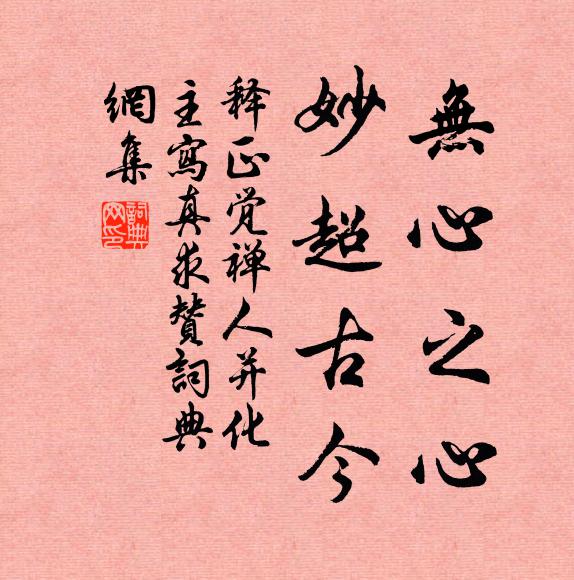 無心之心
妙超古今
释正覺禅人并化
主寫真求贊詞典
網集
詞典網印